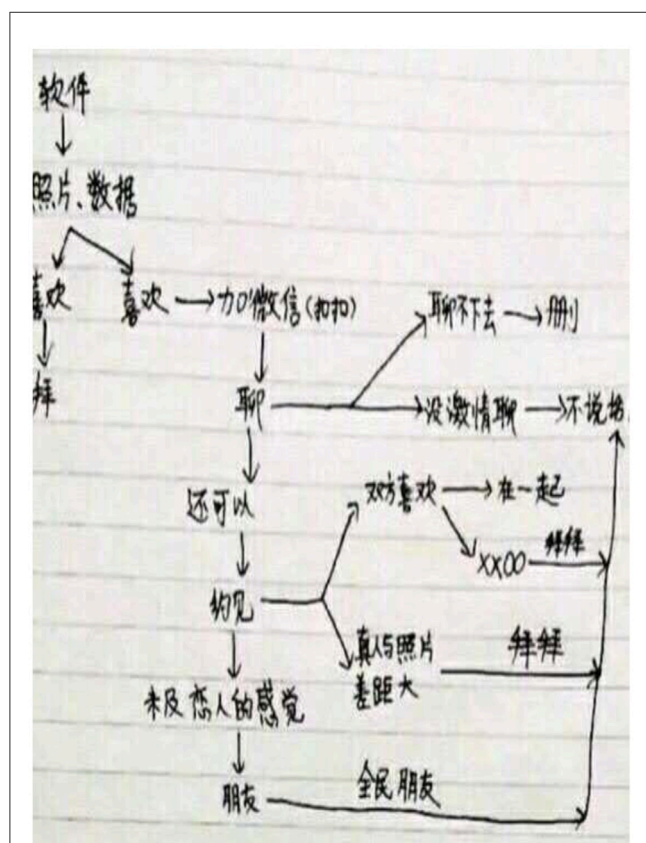 软件
照片、数据
喜欢
喜欢
加微信(扣扣)
聊不下去
删
拜
聊
没激情聊
不说
还可以
双方喜欢
在一起
XXOO
拜拜
约见
真人与照片
差距大
拜拜
未及恋人的感觉
朋友
全民朋友